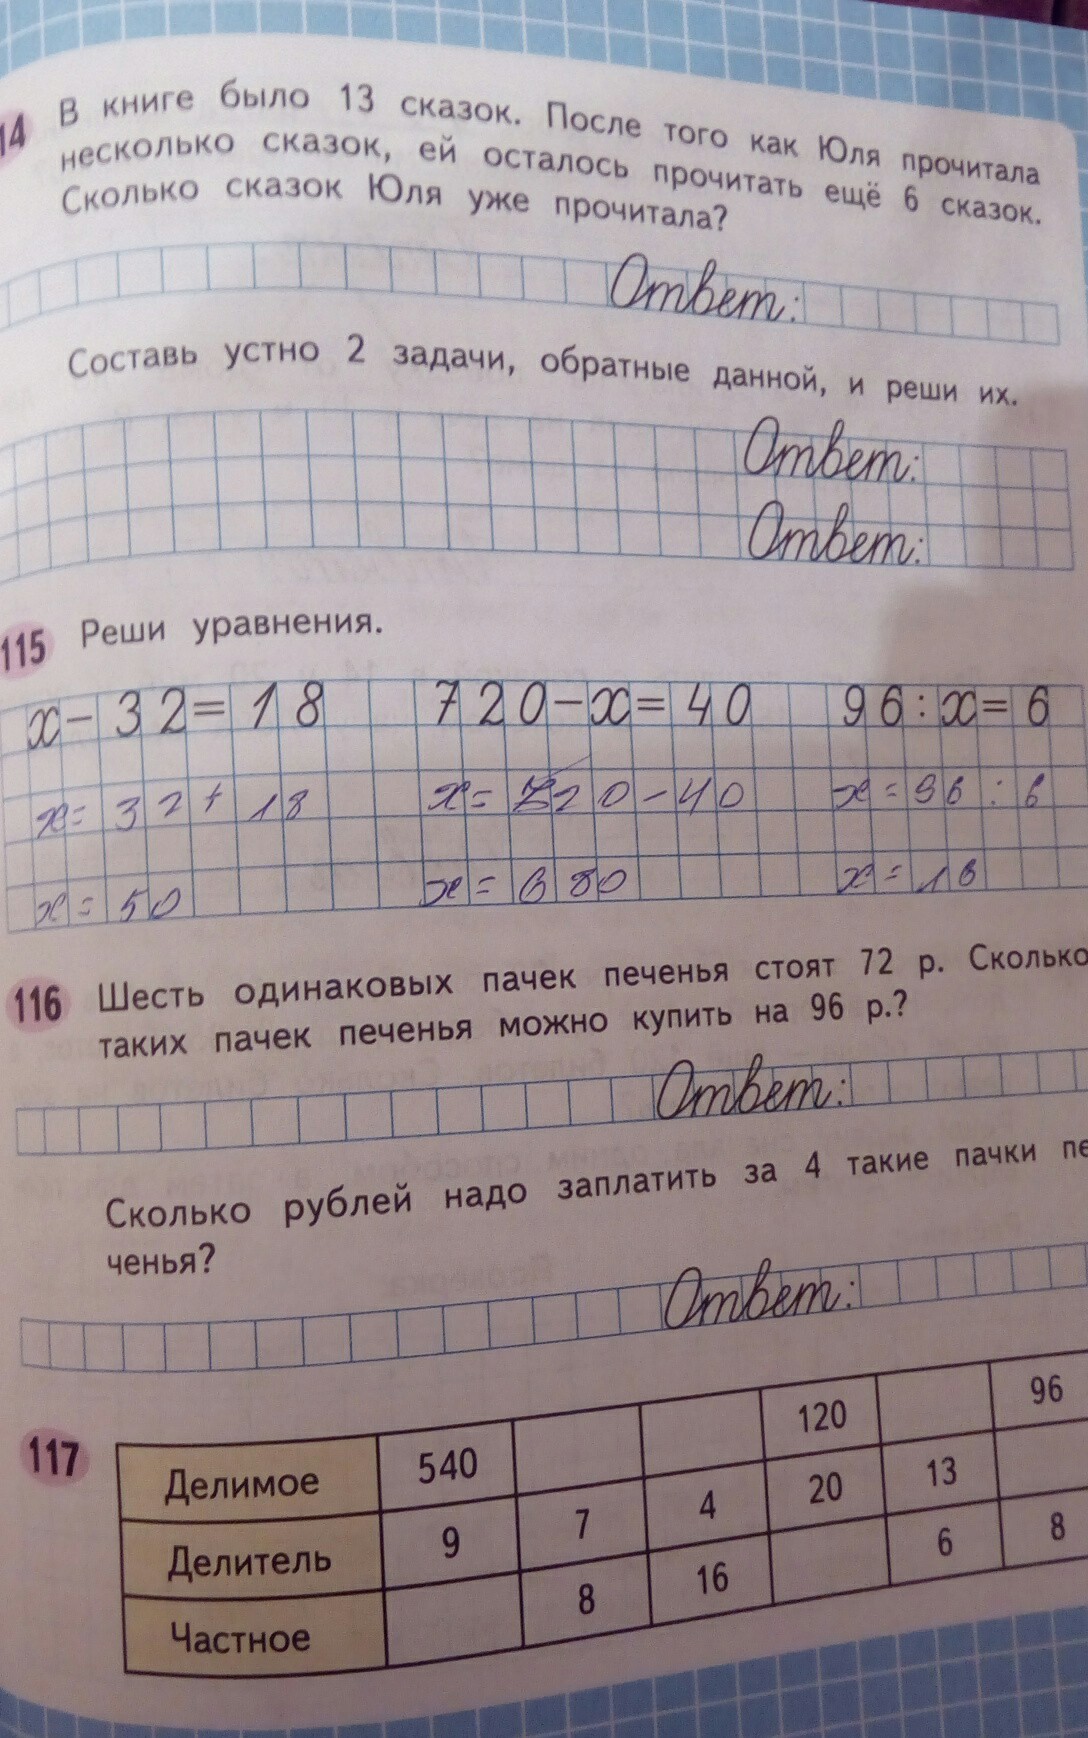 14 В книге было 13 сказок. После того как Юля прочитала
несколько сказок, ей осталось прочитать ещё 6 сказок.
Сколько сказок Юля уже прочитала?
Ответ:
Составь устно 2 задачи, обратные данной, и реши их.
Ответ:
Ответ:
115 Реши уравнения.
x-32=18 720-x=40 96:x=6
x=32+18 x=720-40 x=96:6
x=50 x=680 x=16
116 Шесть одинаковых пачек печенья стоят 72 р. Сколько
таких пачек печенья можно купить на 96 р.?
Ответ:
Сколько рублей надо заплатить за 4 такие пачки пе
ченья?
Ответ:
117
Делимое 540 120 96
Делитель 9 7 4 20 13
Частное 8 16 6 8